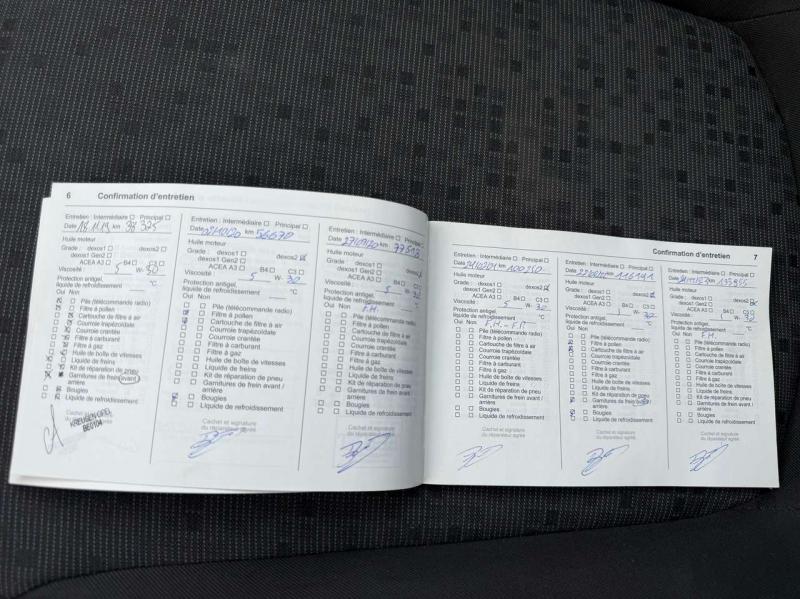 6 Confirmation d'entretien
Entretien : Intermédiaire Principal
Date 18.11.19 km 37 325
Huile moteur
Grade : dexos1 dexos2
dexos1 Gen2
ACEA A3 B4 C3
Viscosité : 5 W- 30
Protection antigel,
liquide de refroidissement °C
Oui Non
Pile (télécommande radio)
Filtre à pollen
Cartouche de filtre à air
Courroie trapézoïdale
Courroie crantée
Filtre à carburant
Filtre à gaz
Huile de boîte de vitesses
Liquide de freins
Kit de réparation de pneu
Garnitures de frein avant /
arrière
Bougies
Liquide de refroidissement
Cachet et signature
du réparateur agréé
Entretien : Intermédiaire Principal
Date km 56670
Huile moteur
Grade : dexos1 dexos2
dexos1 Gen2
ACEA A3 B4 C3
Viscosité : 5 W- 30
Protection antigel,
liquide de refroidissement °C
Oui Non F.H
Pile (télécommande radio)
Filtre à pollen
Cartouche de filtre à air
Courroie trapézoïdale
Courroie crantée
Filtre à carburant
Filtre à gaz
Huile de boîte de vitesses
Liquide de freins
Kit de réparation de pneu
Garnitures de frein avant /
arrière
Bougies
Liquide de refroidissement
Cachet et signature
du réparateur agréé
Entretien : Intermédiaire Principal
Date km
Huile moteur
Grade : dexos1 dexos2
dexos1 Gen2
ACEA A3 B4 C3
Viscosité : 5 W- 30
Protection antigel,
liquide de refroidissement °C
Oui Non F.H.
Pile (télécommande radio)
Filtre à pollen
Cartouche de filtre à air
Courroie trapézoïdale
Courroie crantée
Filtre à carburant
Filtre à gaz
Huile de boîte de vitesses
Liquide de freins
Kit de réparation de pneu
Garnitures de frein avant /
arrière
Bougies
Liquide de refroidissement
Cachet et signature
du réparateur agréé
Confirmation d'entretien 7
Entretien : Intermédiaire Principal
Date km
Huile moteur
Grade : dexos1 dexos2
dexos1 Gen2
ACEA A3 B4 C3
Viscosité : 5 W- 30
Protection antigel,
liquide de refroidissement °C
Oui Non F.H. - F.P.
Pile (télécommande radio)
Filtre à pollen
Cartouche de filtre à air
Courroie trapézoïdale
Courroie crantée
Filtre à carburant
Filtre à gaz
Huile de boîte de vitesses
Liquide de freins
Kit de réparation de pneu
Garnitures de frein avant /
arrière
Bougies
Liquide de refroidissement
Cachet et signature
du réparateur agréé
Entretien : Intermédiaire Principal
Date km
Huile moteur
Grade : dexos1 dexos2
dexos1 Gen2
ACEA A3 B4 C3
Viscosité : W-
Protection antigel,
liquide de refroidissement °C
Oui Non
Pile (télécommande radio)
Filtre à pollen
Cartouche de filtre à air
Courroie trapézoïdale
Courroie crantée
Filtre à carburant
Filtre à gaz
Huile de boîte de vitesses
Liquide de freins
Kit de réparation de pneu
Garnitures de frein avant /
arrière
Bougies
Liquide de refroidissement
Cachet et signature
du réparateur agréé
Entretien : Intermédiaire Principal
Date km
Huile moteur
Grade : dexos1 dexos2
dexos1 Gen2
ACEA A3 B4 C3
Viscosité : W-
Protection antigel,
liquide de refroidissement °C
Oui Non F.H.
Pile (télécommande radio)
Filtre à pollen
Cartouche de filtre à air
Courroie trapézoïdale
Courroie crantée
Filtre à carburant
Filtre à gaz
Huile de boîte de vitesses
Liquide de freins
Kit de réparation de pneu
Garnitures de frein avant /
arrière
Bougies
Liquide de refroidissement
Cachet et signature
du réparateur agréé